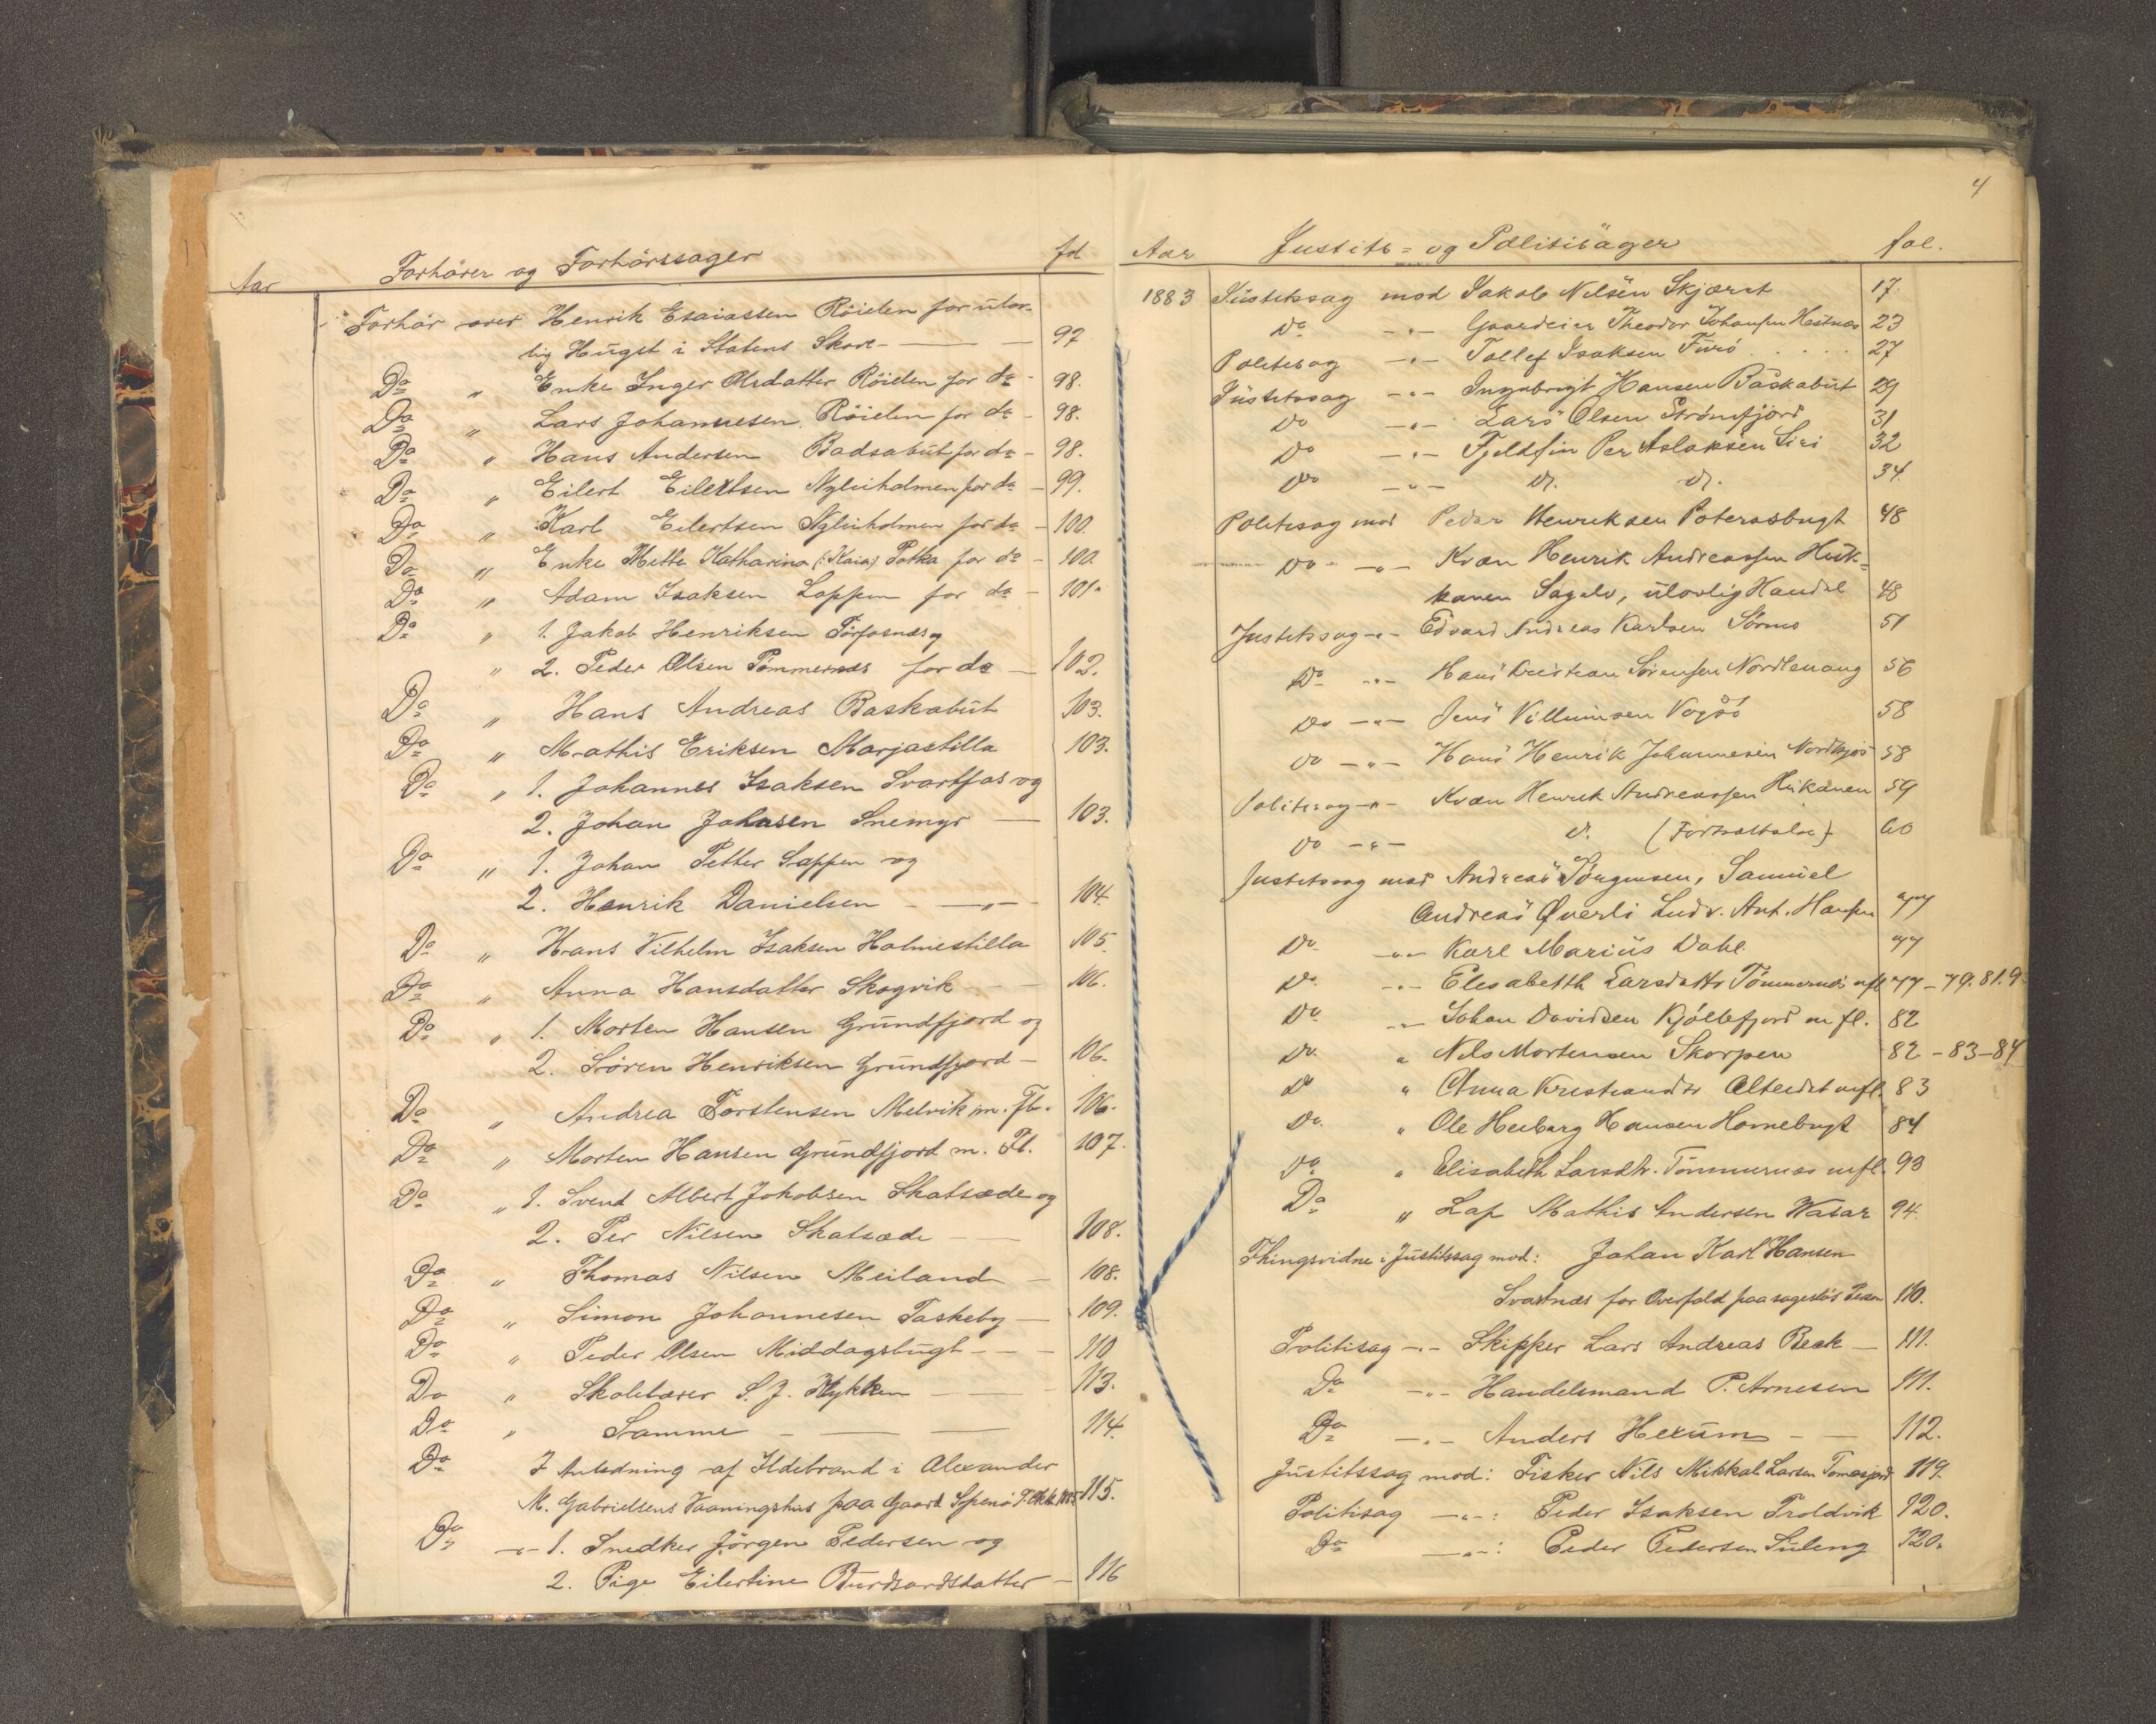 Aar Forhörer og Forhörssager fol
Forhör over Henrik Esaiassen Röielen for ulov-
lig Hugst i Statens Skove — 97
Do " Enke Inger Olsdatter Röielen for do - 98.
Do " Lars Johannesen Röielen for do - 98.
Do " Hans Andersen Badsabut for do - 98.
Do " Eilert Eilertsen Nyleiholmen for do - 99.
Do " Karl Eilertsen Nyleiholmen for do - 100.
Do " Enke Mette Katharina (: Kaia) Potka for do - 100.
Do " Adam Isaksen Loppen for do - 101.
Do " 1. Jakob Henriksen og
" 2. Peder Olsen Tömmernes for do — 102.
Do " Hans Andreas Baskabut 103.
Do " Mathis Eriksen Marjastilla 103.
Do " 1. Johannes Isaksen Svartfos og
2. Johan Johnsen Snemyr — 103.
Do " 1. Johan Petter Sappen og
2. Henrik Danielsen - —"— 104
Do " Hans Vilhelm Isaksen Holmestilla 105.
Do " Anna Hansdatter Skogvik - - 106.
Do " 1. Morten Hansen Grundfjord og
2. Sören Henriksen Grundfjord - 106.
Do " Andrea Torstensen Melvik m. Fl. 106.
Do " Morten Hansen Grundfjord m. Fl. 107.
Do " 1. Svend Albert Jakobsen Skatsæde og
2. Per Nilsen Skatsæde — 108.
Do " Thomas Nilsen Meiland - 108.
Do " Simon Johannesen Taskeby — 109.
Do " Peder Olsen Middagsbugt - - - 110
Do " Skolelærer S. J. Hykken — 113.
Do " Samme - — — 114.
Do I Anledning af Ildebrand i Alexander
M. Gabrielsens Vaaningshus paa Gaard 115.
Do -"- 1. Snedker Jörgen Pedersen og
2. Pige Eilertine Burdsardsdatter — 116
4
Aar Justits- og Politisager fol.
1883 Justitssag mod Jakob Nilsen Skjæret 17.
Do -"- Gaardeier Theodor Johansen Hestnes 23
Politisag -"- Tollef Isaksen Furö . . . . . 27
Justitssag -"- Ingebrigt Hansen Baskabut 29
Do -"- Lars Olsen Strömfjord 31
Do -"- Fjeldfin Per Aslaksen Siri 32
Do -"- d. d. 34.
Politisag mod Peder Henriksen Poterasbugt 48
Do -"- Kvæn Henrik Andreassen Huk-
kanen Sagelv, ulovlig Handel 48
Justitssag -"- Edvard Andreas Karlsen 51
Do -"- Hans Kristian Sörensen Nordlenang 56
Do -"- Jens Villumsen Vogsö 58
Do -"- Hans Henrik Johannesen 58
Politisag -"- Kvæn Henrik Andreassen Hukanen 59
Do -"- d. (Fortsættelse) 60
Justitssag mod Andreas Jörgensen, Samuel
Andreas Qverli Ludv. Ant. Hansen 77
Do -"- Karl Marius Dahl 77
Do -"- Elesabetth Larsdatter Tömmernes mfl 77 - 79. 81. 9
Do -"- Johan Davidsen Kjöllefjord m fl. 82
Do " Nils Mortensen Skorpen 82 - 83 - 84
Do " Anna Kristiansdtr Alteidet mfl. 83
Do " Ole Heiberg Hansen Hamnebugt 84
Do " Elisabeth Larsdtr. Tömmernes mfl. 93
Do " Lap Mathis Andersen Wasar 94.
Thingsvidne i Justitssag mod: Johan Karl Hansen
Svartnæs for Overfald paa sageslös Person 110.
Politisag -"- Skipper Lars Andreas Beck — 111.
Do -"- Handelsmand P. Arnesen 111.
Do -"- Anders Hexum - — 112.
Justitssag mod: Fisker Nils Mikkal Larsen Tomasjord 119.
Politisag -"-: Peder Isaksen Troldvik 120.
Do -"-: Peder Pedersen Suleng 120.